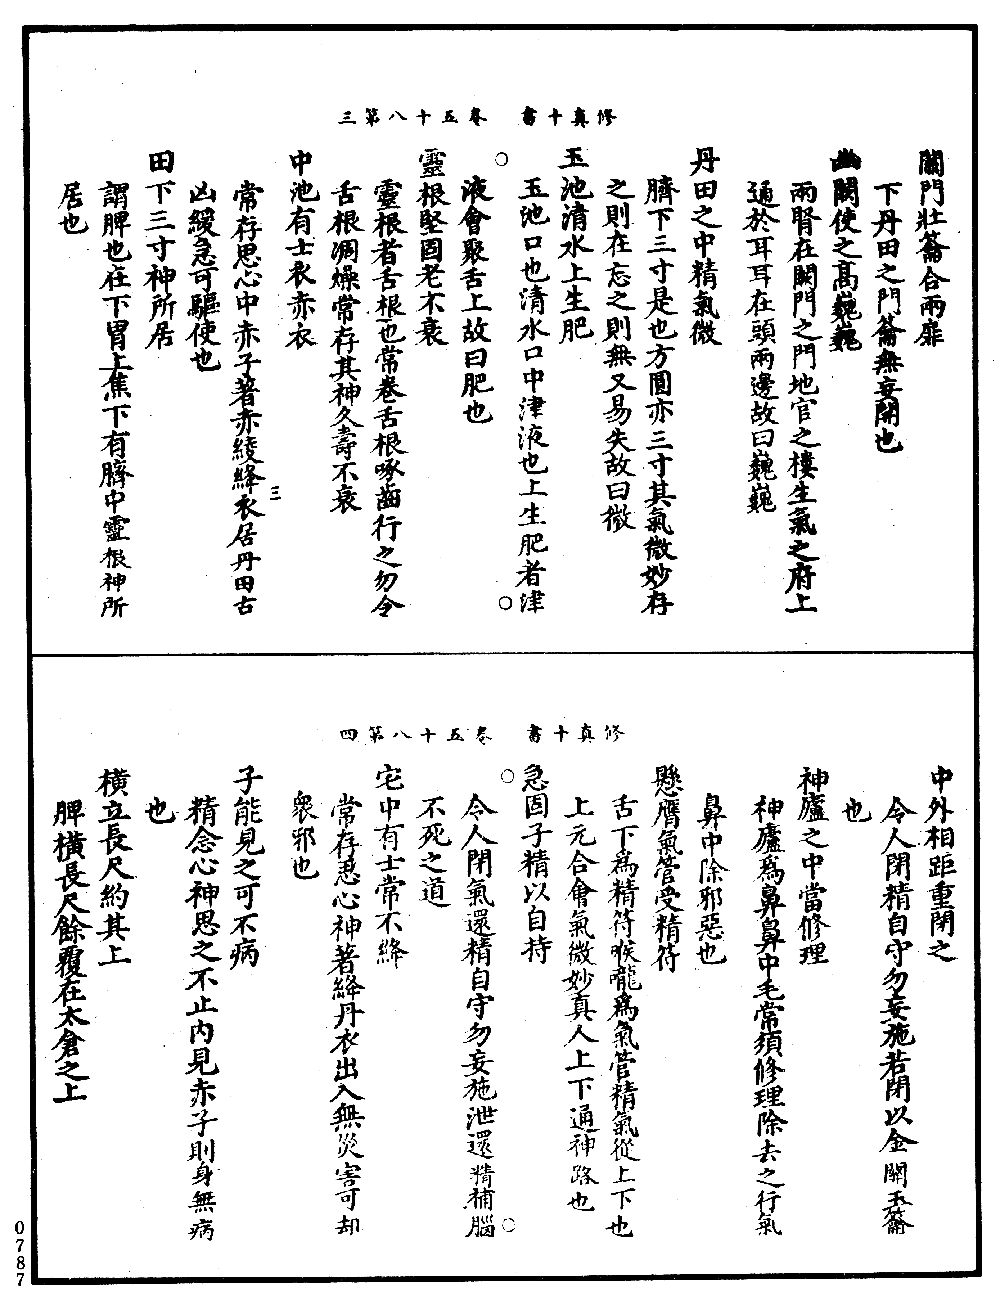 修真十書　卷五十八第三
關門壯籥合兩靡
下丹田之門籥無妄開也
幽闕使之高巍巍
兩腎在關門之門地官之樓生氣之府上
通於耳耳在頭兩邊故曰巍巍
丹田之中精氣微
臍下三寸是也方圓亦三寸其氣微妙存
之則在忘之則無又易失故曰微
玉池清水上生肥
玉池口也清水口中津液也上生肥者津
液會聚舌上故曰肥也
靈根堅固老不衰
靈根者舌根也常卷舌根啄齒行之勿令
舌根凋燥常存其神久壽不衰
中池有士衣赤衣
三
常存思心中赤子著赤綾絳衣居丹田古
凶緩急可驅使也
田下三寸神所居
謂脾也在下胃上焦下有臍中靈根神所
居也
修真十書　卷五十八第四
中外相距重閉之
令人閉精自守勿妄施若閉以金關玉籥
也
神廬之中當修理
神廬爲鼻鼻中毛常須修理除去之行氣
鼻中除邪惡也
懸膺氣管受精符
舌下爲精符喉嚨爲氣管精氣從上下也
上元合會氣微妙真人上下通神路也
急固子精以自持
令人閉氣還精自守勿妄施泄還精補腦
不死之道
宅中有士常衣絳
常存思心神著絳丹衣出入無災害可却
衆邪也
子能見之可不病
精念心神思之不止內見赤子則身無病
也
橫立長尺約其上
脾橫長尺餘覆在太倉之上
0787